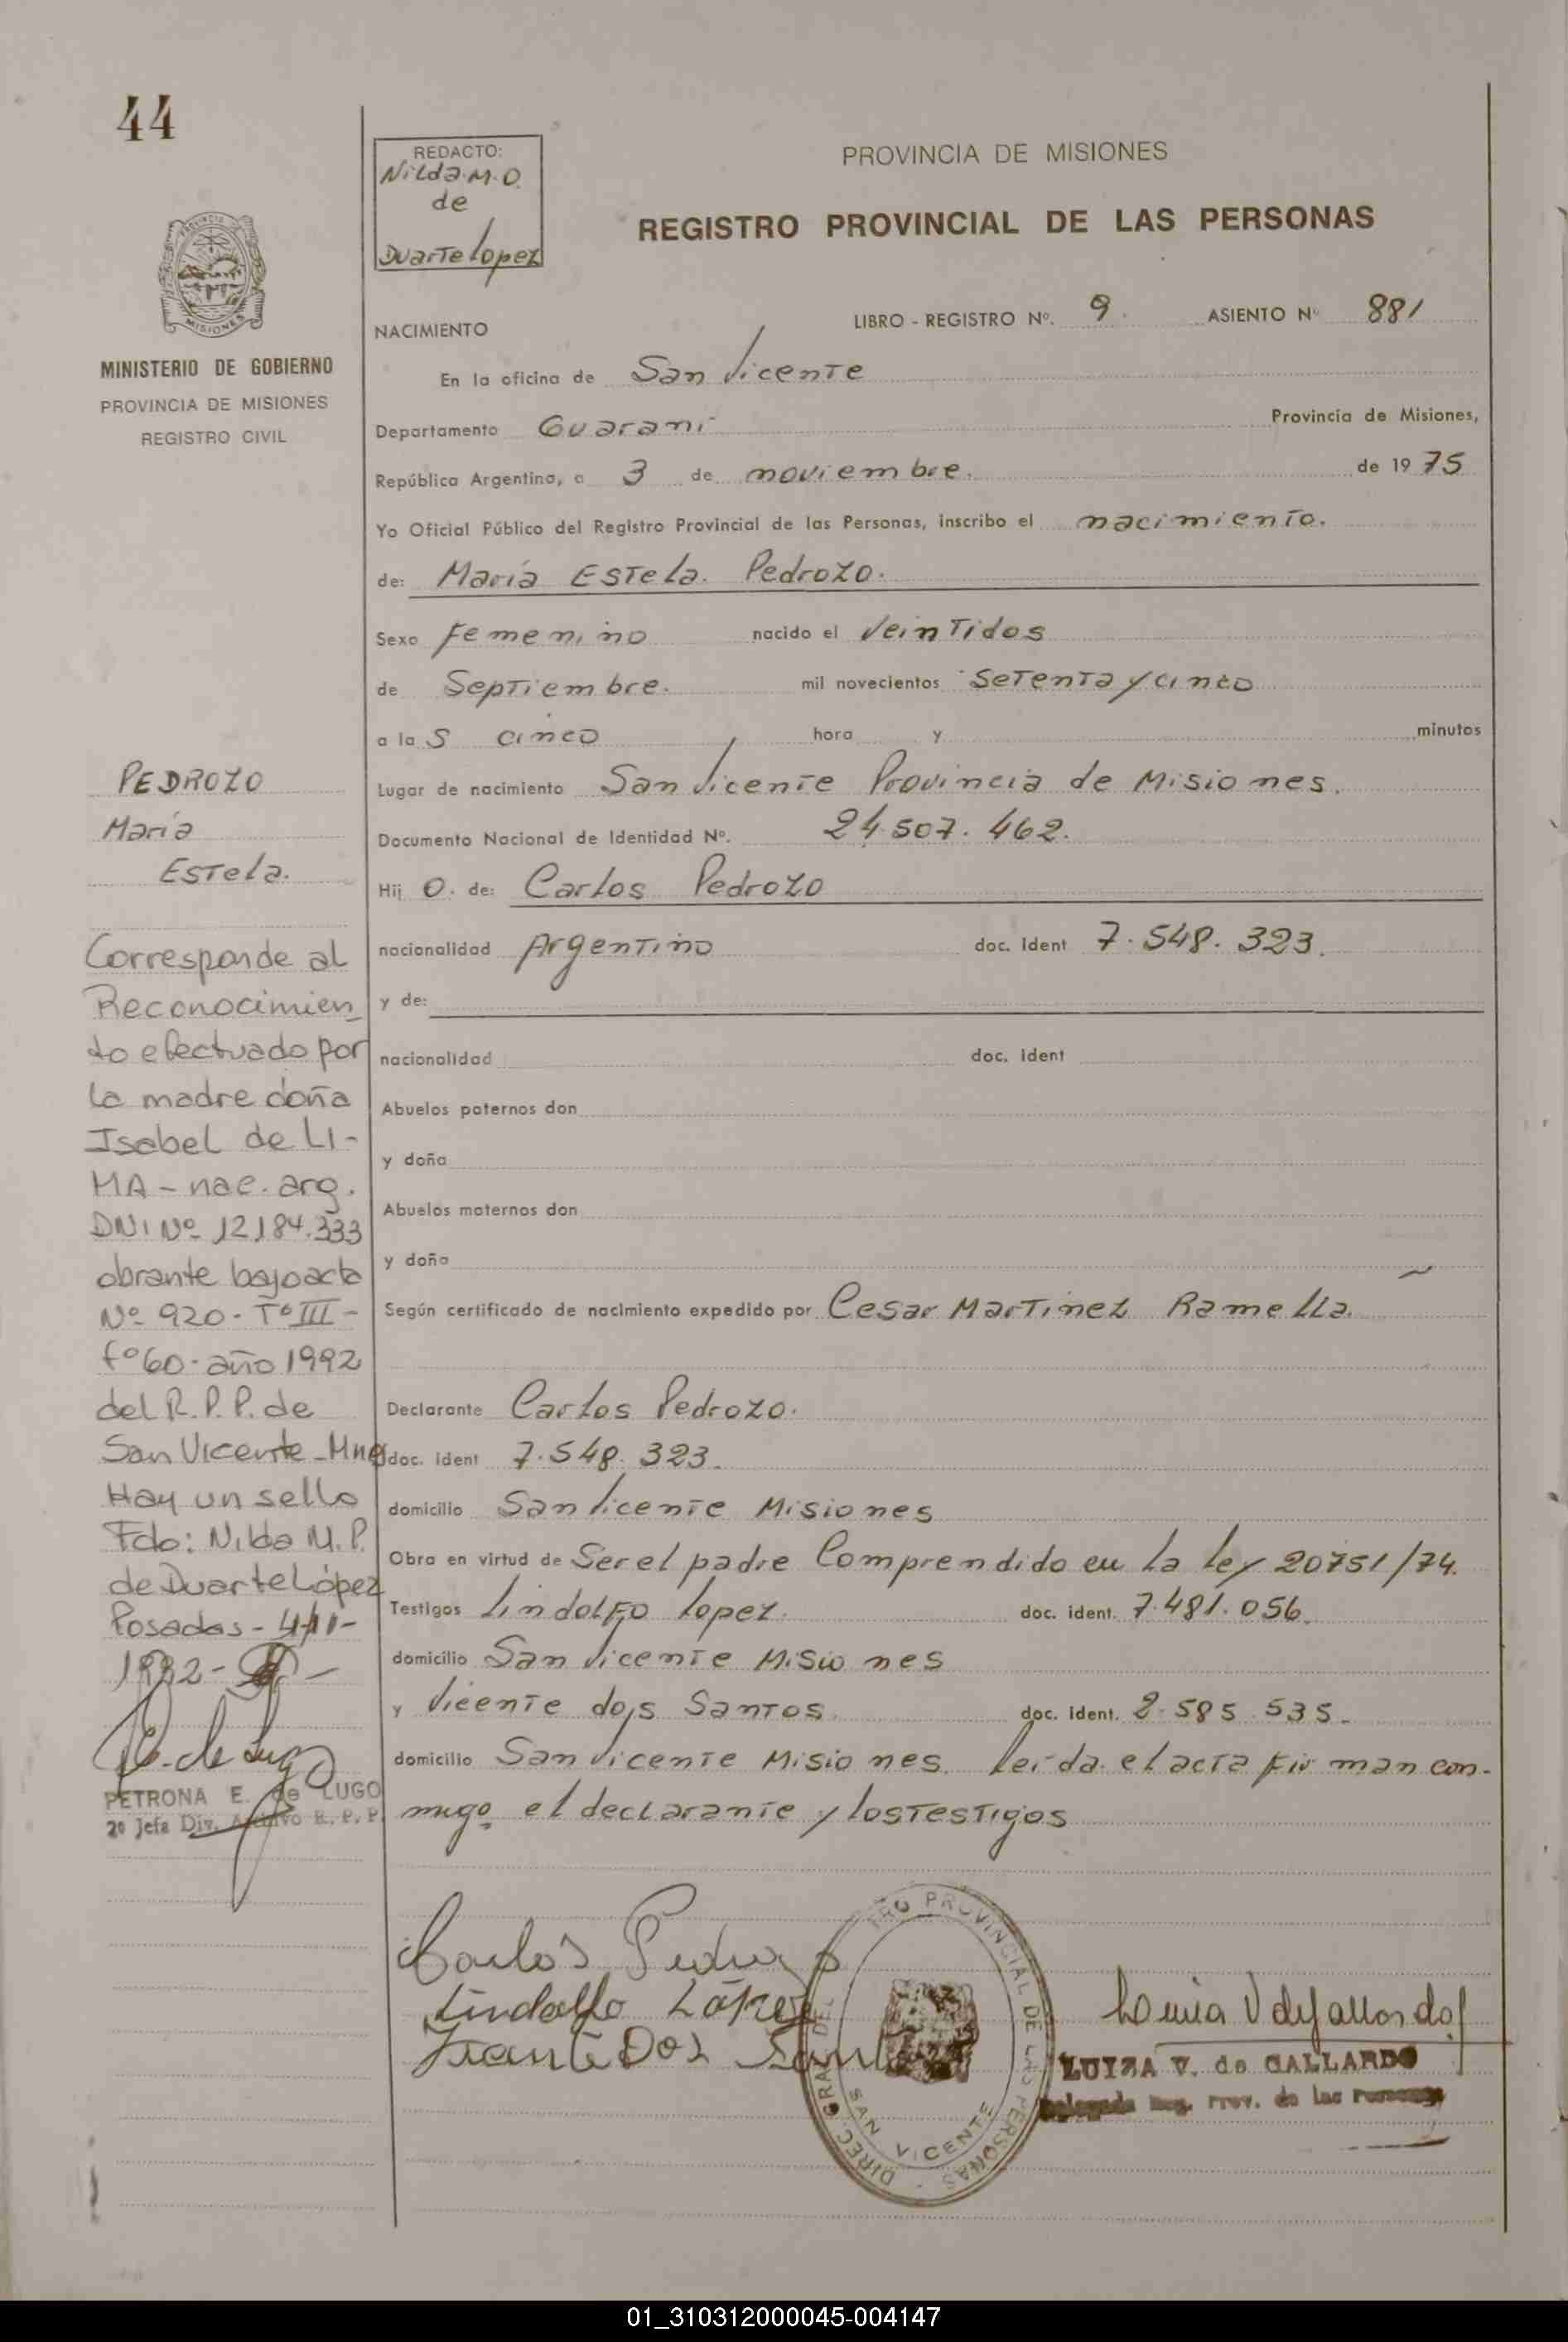 44
REDACTO:
Nilda M.O.
de
Duarte Lopez
PROVINCIA DE MISIONES
REGISTRO PROVINCIAL DE LAS PERSONAS
MISIONES
MINISTERIO DE GOBIERNO
PROVINCIA DE MISIONES
REGISTRO CIVIL
NACIMIENTO
LIBRO - REGISTRO Nº. 9. ASIENTO Nº 881
En la oficina de San Vicente
Departamento Guarani Provincia de Misiones,
República Argentina, a 3 de noviembre. de 1975
Yo Oficial Público del Registro Provincial de las Personas, inscribo el nacimiento.
de: María Estela. Pedrozo.
Sexo Femenino nacido el Veintidos
de Septiembre. mil novecientos setenta y cinco
a las cinco hora y minutos
Lugar de nacimiento San Vicente Provincia de Misiones.
Documento Nacional de Identidad Nº. 24.507.462.
Hij o. de: Carlos Pedrozo
nacionalidad Argentino doc. Ident 7.548.323.
y de:
nacionalidad doc. ident
Abuelos paternos don
y doña
Abuelos maternos don
y doña
Según certificado de nacimiento expedido por Cesar Martinez Ramella.
Declarante Carlos Pedrozo.
doc. ident 7.548.323.
domicilio San Vicente Misiones
Obra en virtud de Ser el padre Comprendido en la Ley 20751/74.
Testigos Lindolfo Lopez. doc. ident. 7.481.056.
domicilio San Vicente Misiones
y Vicente dos Santos doc. ident. 2.585.535.
domicilio San Vicente Misiones. Leída el acta firman con-
migo el declarante y los testigos
PEDROZO
María
Estela.
Corresponde al
Reconocimien
to efectuado por
la madre doña
Isabel de LI-
MA - nac. arg.
DNI Nº 12184.333
obrante bajo acta
Nº 920 - Tº III -
fº 60 - año 1992
del R.P.P. de
San Vicente - Mnes
Hay un sello
Fdo: Nilda M. P.
de Duarte López
Posadas - 4-11-
1992 -
PETRONA E. de LUGO
2º Jefa Div. Archivo R. P. P.
Carlos Pedrozo
Lindolfo López
Vicente Dos Santos
DIREC. GRAL DEL REGISTRO PROVINCIAL DE LAS PERSONAS
SAN VICENTE
LUIZA V. de GALLARDO
Delegada Reg. Prov. de las Personas
01_310312000045-004147